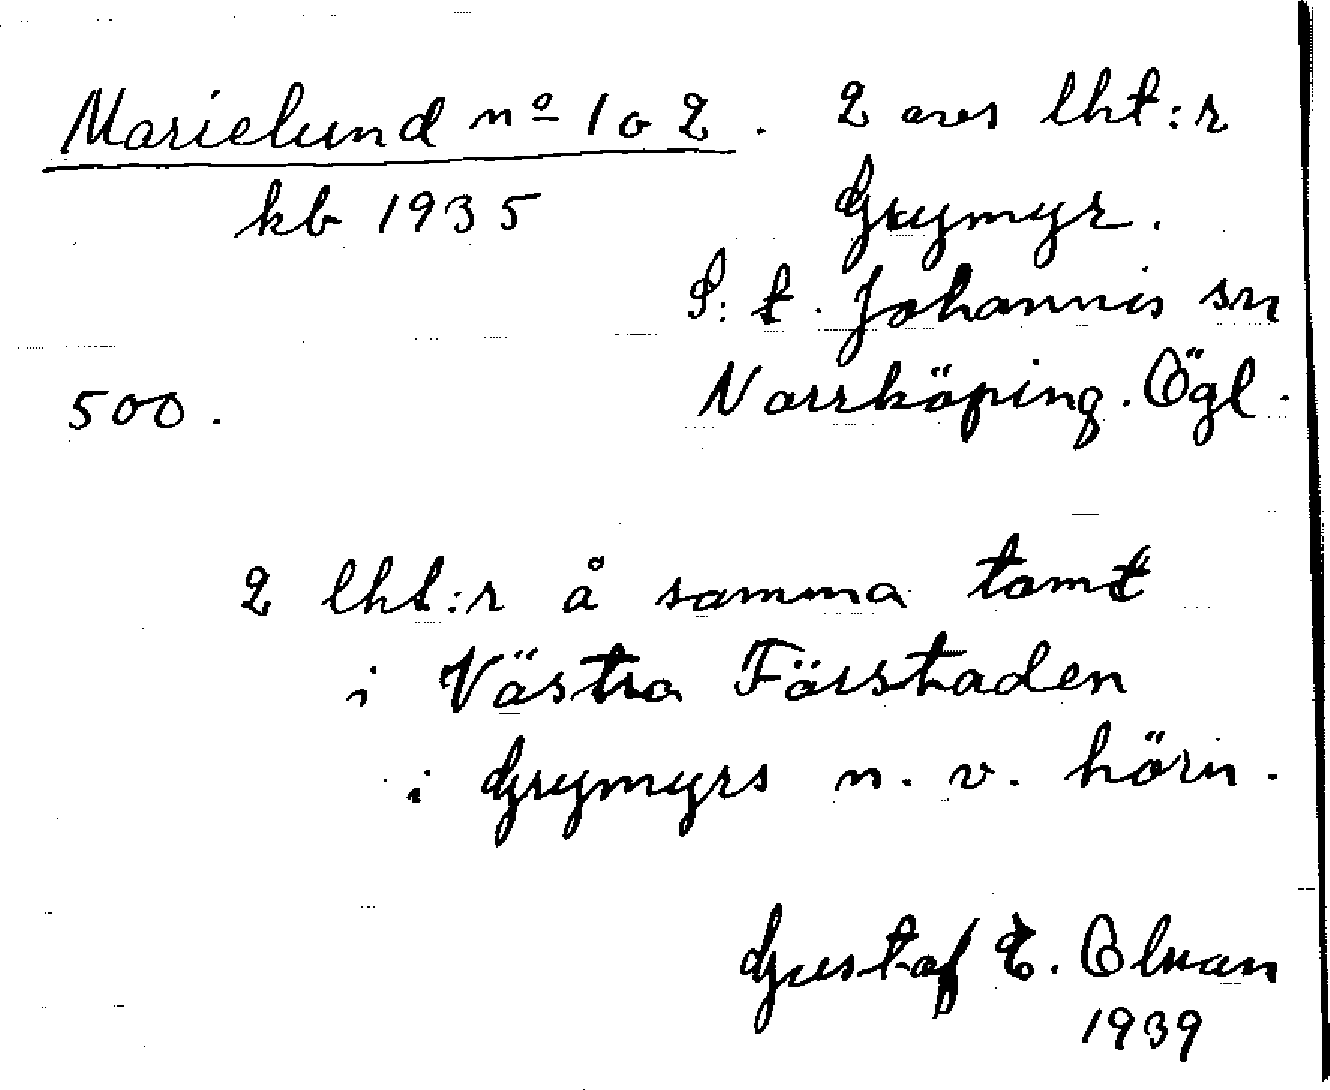 Marielund nº 1 o 2. 2 avs lht:r
kb 1935 Grymyr.
S:t. Johannis sn
500. Norrköping. Ögl.
2 lht:r å samma tomt
i Västra Förstaden
i Grymyrs n. v. hörn.
Gustaf E.
1939